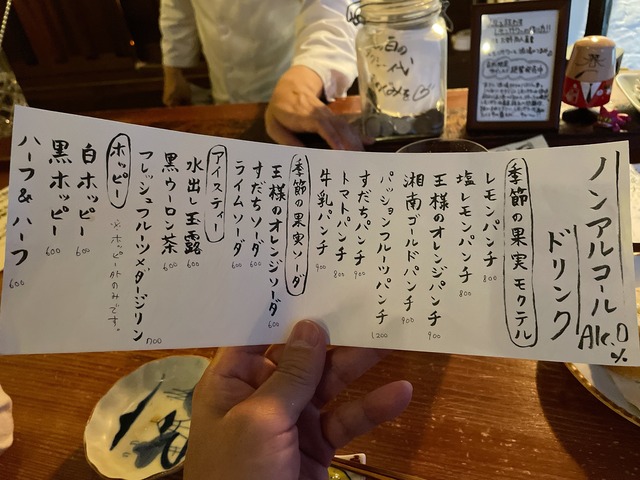 ノンアルコール
ドリンク
Alc.0%
季節の果実モクテル
レモンパンチ 800
塩レモンパンチ 800
王様のオレンジパンチ 900
湘南ゴールドパンチ 900
パッションフルーツパンチ 1,200
すだちパンチ 900
トマトパンチ 800
牛乳パンチ 900
季節の果実ソーダ
王様のオレンジソーダ 600
すだちソーダ 600
ライムソーダ 600
アイスティー
水出し玉露 600
黒ウーロン茶 600
フレッシュフルーツ×ダージリン 700
ホッピー
※ホッピー外のみです。
白ホッピー 600
黒ホッピー 600
ハーフ&ハーフ 600